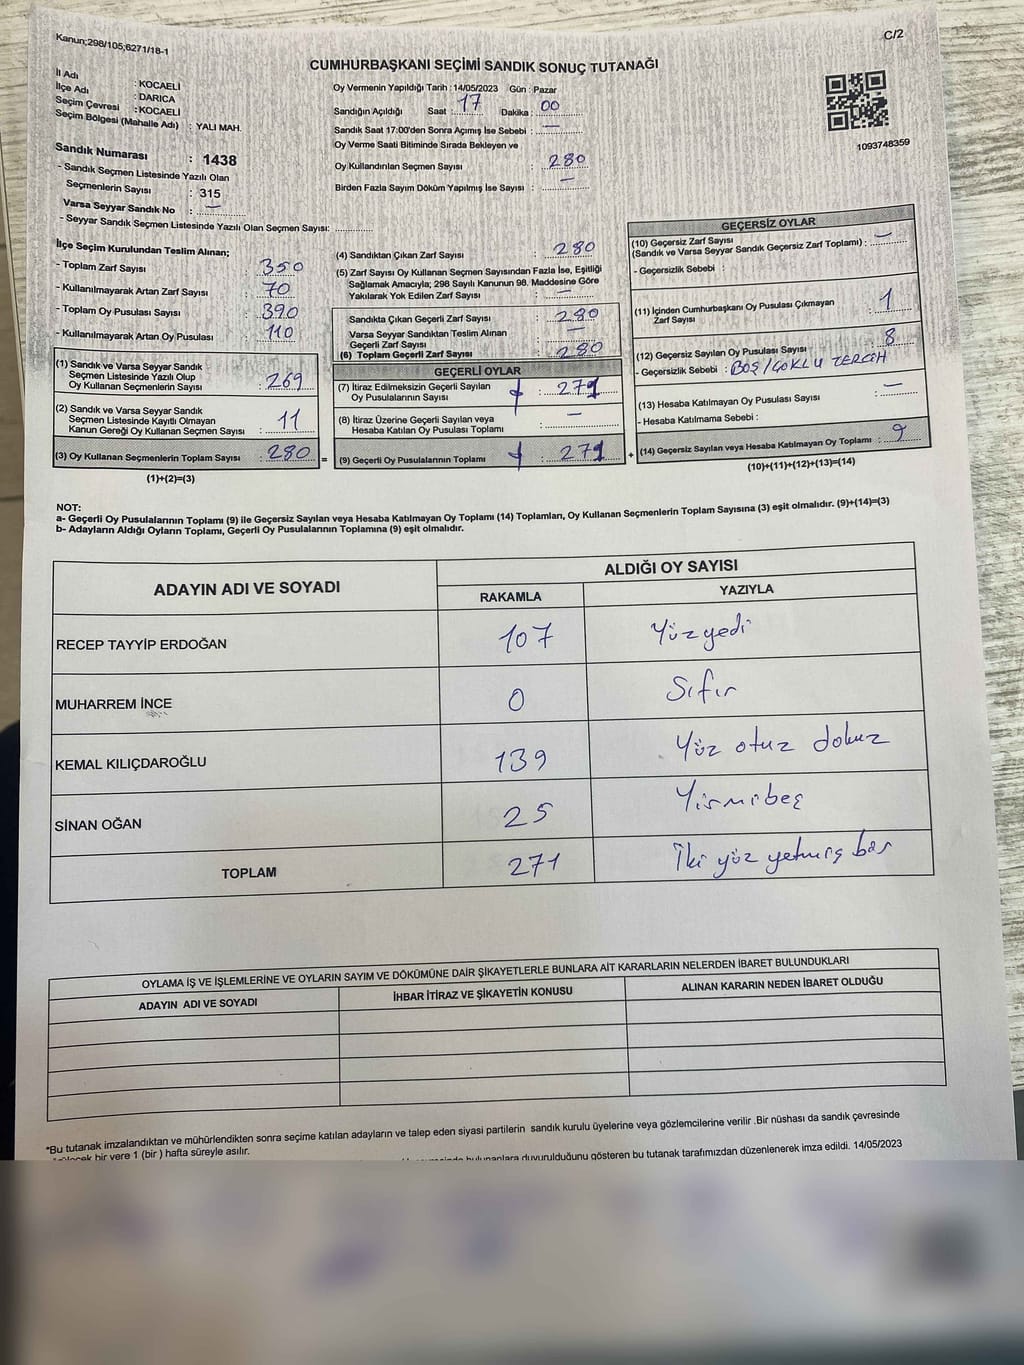 Kanun;298/105;6271/18-1
C/2
CUMHURBAŞKANI SEÇİMİ SANDIK SONUÇ TUTANAĞI
İl Adı : KOCAELİ
İlçe Adı : DARICA
Seçim Çevresi : KOCAELİ
Seçim Bölgesi (Mahalle Adı) : YALI MAH.
Sandık Numarası : 1438
- Sandık Seçmen Listesinde Yazılı Olan
Seçmenlerin Sayısı : 315
Varsa Seyyar Sandık No : —
- Seyyar Sandık Seçmen Listesinde Yazılı Olan Seçmen Sayısı: ............
Oy Vermenin Yapıldığı Tarih : 14/05/2023 Gün : Pazar
Sandığın Açıldığı Saat : 17 Dakika : 00
Sandık Saat 17:00'den Sonra Açımış İse Sebebi : —
Oy Verme Saati Bitiminde Sırada Bekleyen ve
Oy Kullandırılan Seçmen Sayısı : 280
Birden Fazla Sayım Döküm Yapılmış İse Sayısı : —
1093748359
İlçe Seçim Kurulundan Teslim Alınan;
- Toplam Zarf Sayısı : 350
- Kullanılmayarak Artan Zarf Sayısı : 70
- Toplam Oy Pusulası Sayısı : 390
- Kullanılmayarak Artan Oy Pusulası : 110
(1) Sandık ve Varsa Seyyar Sandık
Seçmen Listesinde Yazılı Olup
Oy Kullanan Seçmenlerin Sayısı : 269
(2) Sandık ve Varsa Seyyar Sandık
Seçmen Listesinde Kayıtlı Olmayan
Kanun Gereği Oy Kullanan Seçmen Sayısı : 11
(3) Oy Kullanan Seçmenlerin Toplam Sayısı : 280 =
(1)+(2)=(3)
(4) Sandıktan Çıkan Zarf Sayısı : 280
(5) Zarf Sayısı Oy Kullanan Seçmen Sayısından Fazla İse, Eşitliği
Sağlamak Amacıyla; 298 Sayılı Kanunun 98. Maddesine Göre
Yakılarak Yok Edilen Zarf Sayısı : —
Sandıkta Çıkan Geçerli Zarf Sayısı : 280
Varsa Seyyar Sandıktan Teslim Alınan
Geçerli Zarf Sayısı : —
(6) Toplam Geçerli Zarf Sayısı : 280
GEÇERLİ OYLAR
(7) İtiraz Edilmeksizin Geçerli Sayılan
Oy Pusulasının Sayısı : 271
(8) İtiraz Üzerine Geçerli Sayılan veya
Hesaba Katılan Oy Pusulası Toplamı : —
(9) Geçerli Oy Pusulalarının Toplamı : 271 +
GEÇERSİZ OYLAR
(10) Geçersiz Zarf Sayısı
(Sandık ve Varsa Seyyar Sandık Geçersiz Zarf Toplamı) : —
- Geçersizlik Sebebi :
(11) İçinden Cumhurbaşkanı Oy Pusulası Çıkmayan
Zarf Sayısı : 1
(12) Geçersiz Sayılan Oy Pusulası Sayısı : 8
- Geçersizlik Sebebi : BOŞ/ÇOKLU TERCİH
(13) Hesaba Katılmayan Oy Pusulası Sayısı : —
- Hesaba Katılmama Sebebi :
(14) Geçersiz Sayılan veya Hesaba Katılmayan Oy Toplamı : 9
(10)+(11)+(12)+(13)=(14)
NOT:
a- Geçerli Oy Pusulalarının Toplamı (9) ile Geçersiz Sayılan veya Hesaba Katılmayan Oy Toplamı (14) Toplamları, Oy Kullanan Seçmenlerin Toplam Sayısına (3) eşit olmalıdır. (9)+(14)=(3)
b- Adayların Aldığı Oyların Toplamı, Geçerli Oy Pusulalarının Toplamına (9) eşit olmalıdır.
ADAYIN ADI VE SOYADI
ALDIĞI OY SAYISI
RAKAMLA YAZIYLA
RECEP TAYYİP ERDOĞAN 107 Yüzyedi
MUHARREM İNCE 0 Sıfır
KEMAL KILIÇDAROĞLU 139 Yüz otuz dokuz
SİNAN OĞAN 25 Yirmibeş
TOPLAM 271 İki yüz yetmiş bir
OYLAMA İŞ VE İŞLEMLERİNE VE OYLARIN SAYIM VE DÖKÜMÜNE DAİR ŞİKAYETLERLE BUNLARA AİT KARARLARIN NELERDEN İBARET BULUNDUKLARI
ADAYIN ADI VE SOYADI İHBAR İTİRAZ VE ŞİKAYETİN KONUSU ALINAN KARARIN NEDEN İBARET OLDUĞU
*Bu tutanak imzalandıktan ve mühürlendikten sonra seçime katılan adayların ve talep eden siyasi partilerin sandık kurulu üyelerine veya gözlemcilerine verilir .Bir nüshası da sandık çevresinde
bir yere 1 (bir ) hafta süreyle asılır.
bulunanlara duyurulduğunu gösteren bu tutanak tarafımızdan düzenlenerek imza edildi. 14/05/2023